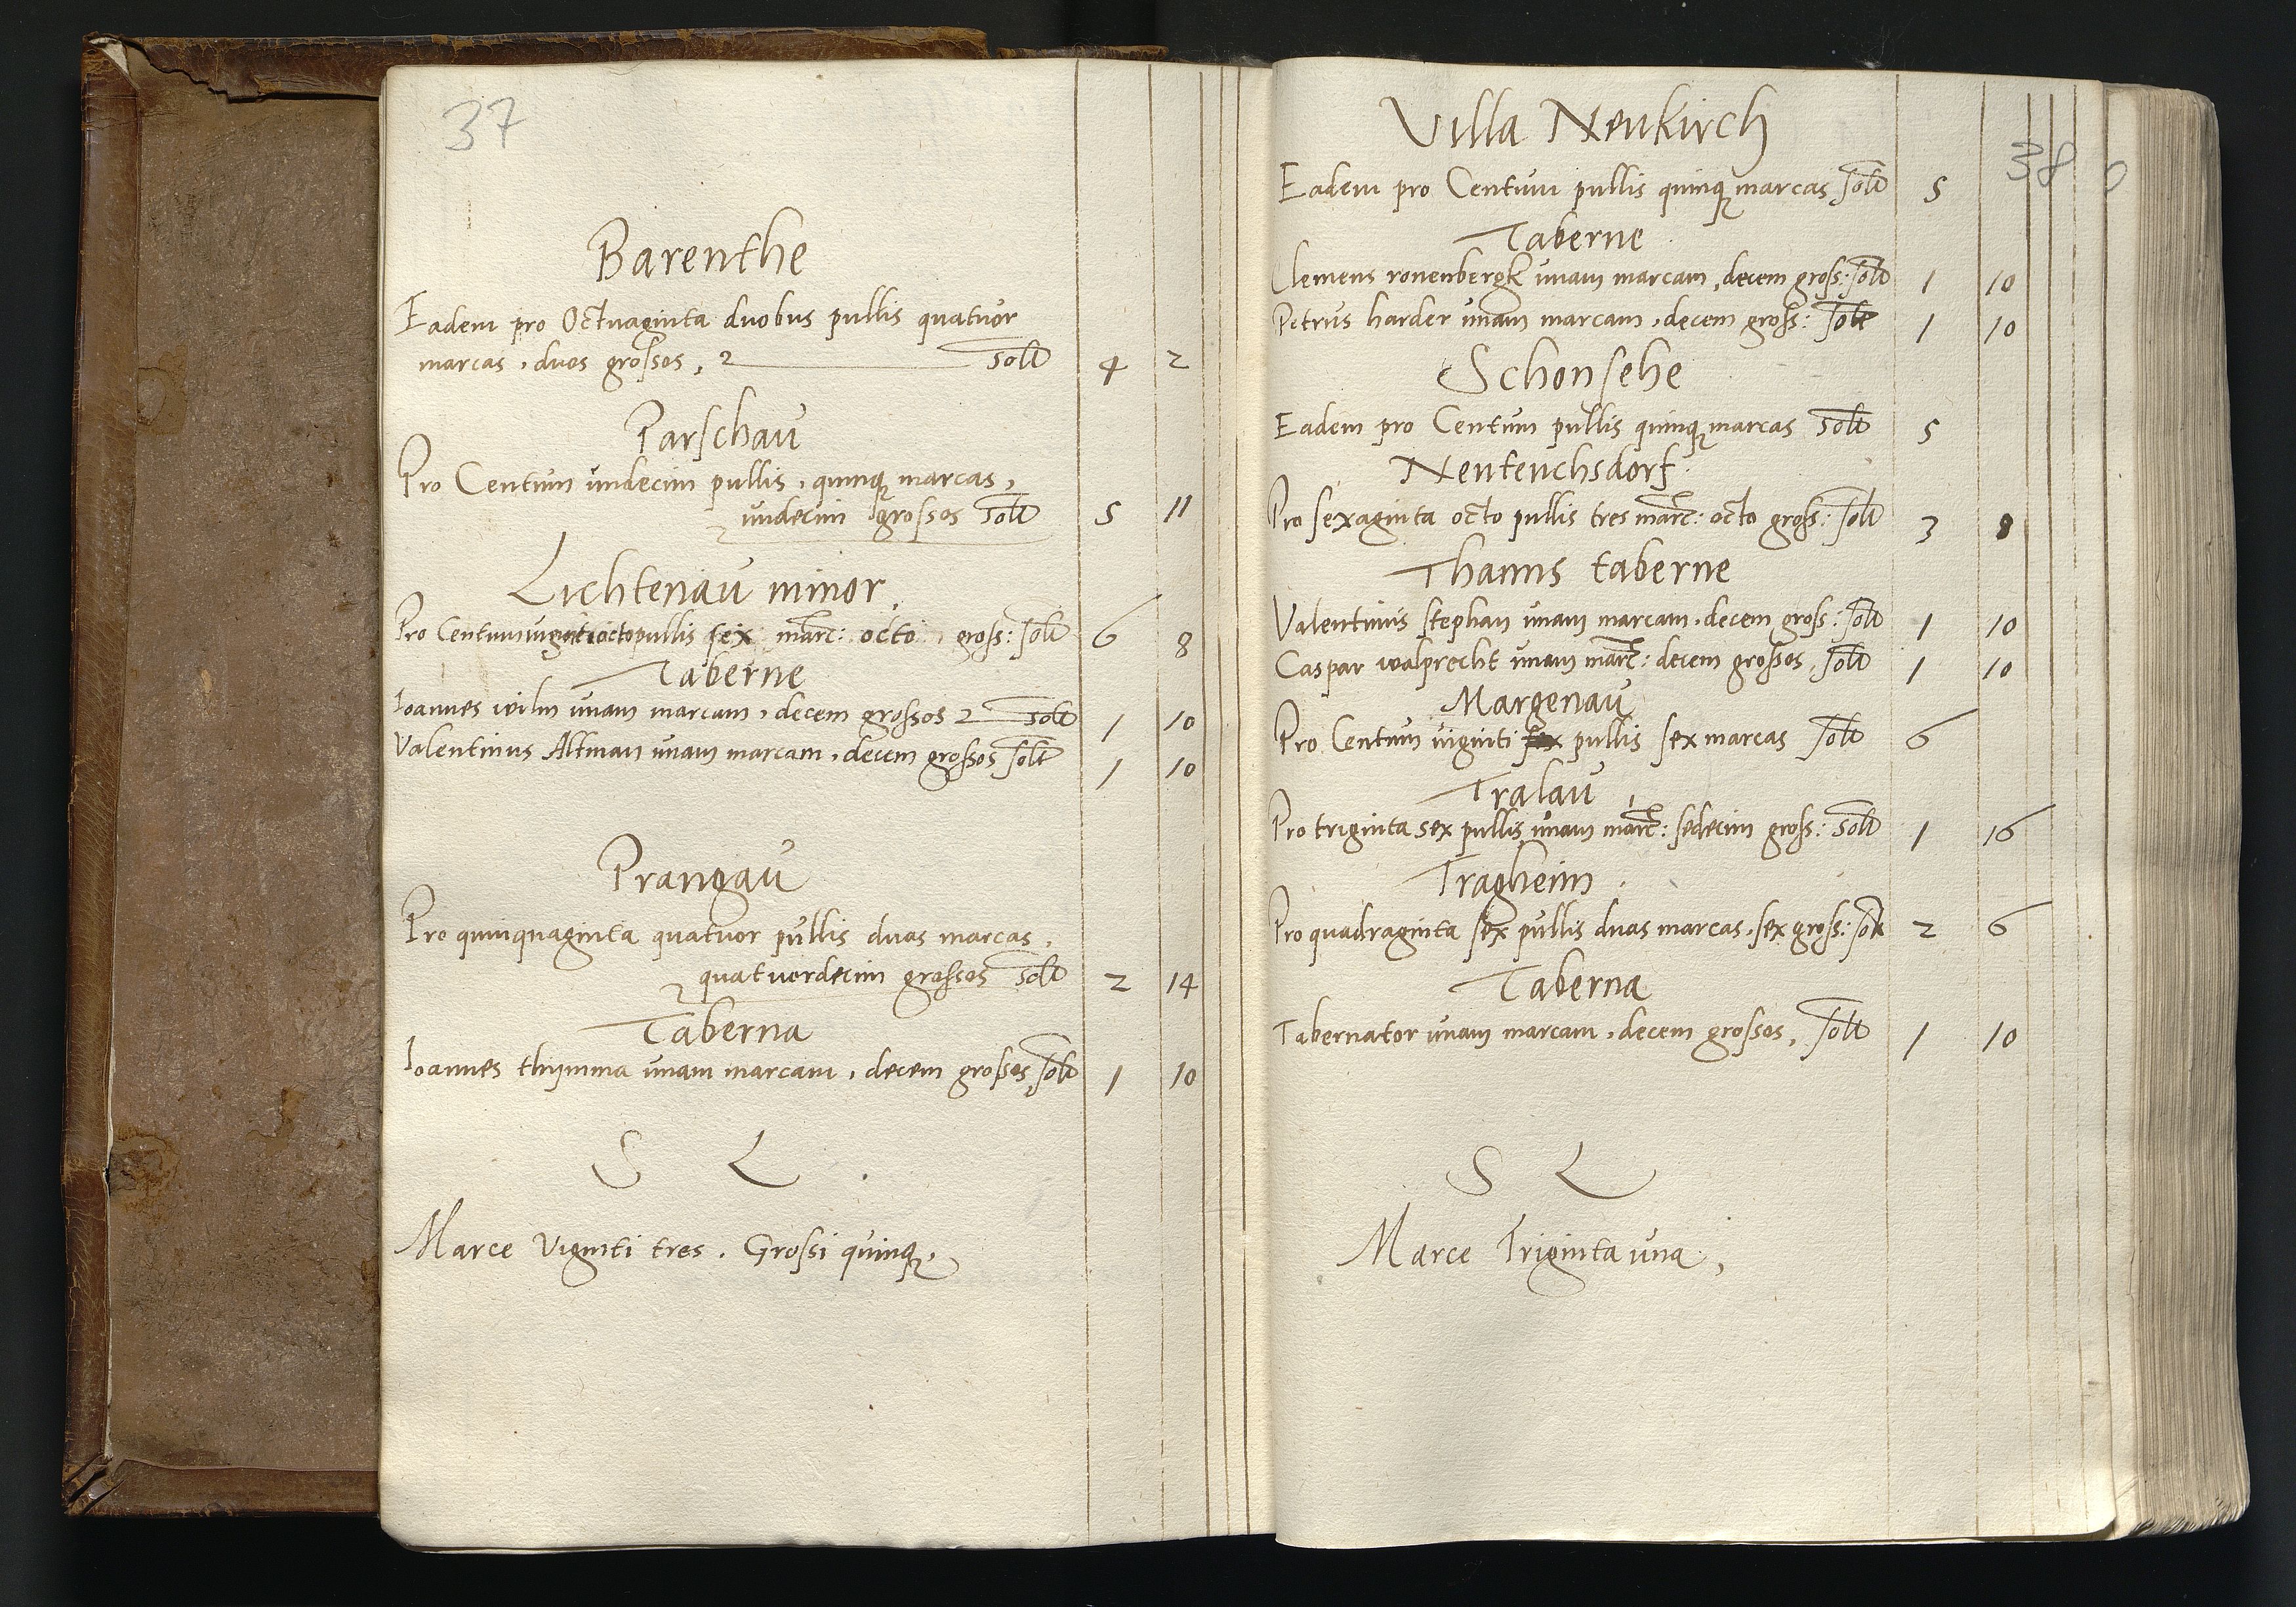 37
Barenthe
Eadem pro Octuaginta duobus pullis quatuor
marcas, duos grossos, solt 4 2
Parschau
Pro Centum undecim pullis, quinq marcas,
undecim grossos solt 5 11
Lichtenau minor
Pro Centum viginti octo pullis sex marc: octo gross: solt 6 8
Taberne
Ioannes wilm unam marcam, decem grossos solt 1 10
Valentinus Altman unam marcam, decem grossos solt 1 10
Prangau
Pro quinquaginta quatuor pullis duas marcas,
quatuordecim grossos solt 2 14
Taberna
Ioannes thymma unam marcam, decem grossos solt 1 10
S L
Marce Viginti tres. Grossi quinq,
38
Villa Neukirch
Eadem pro Centum pullis quinq marcas solt 5
Taberne
Clemens ronenbergk unam marcam, decem gross: solt 1 10
Petrus harder unam marcam, decem gross: solt 1 10
Schonsehe
Eadem pro Centum pullis quinq marcas solt 5
Neuteuchsdorf
Pro sexaginta octo pullis tres marc: octo gross: solt 3 8
Thanns taberne
Valentinus stephan unam marcam, decem gross: solt 1 10
Caspar walprecht unam marc: decem grossos, solt 1 10
Margenau
Pro Centum viginti sex pullis sex marcas solt 6
Tralau
Pro triginta sex pullis unam marc: sedecim gross: solt 1 16
Tragheim
Pro quadraginta sex pullis duas marcas, sex gross: solt 2 6
Taberna
Tabernator unam marcam, decem grossos, solt 1 10
S L
Marce Triginta una,